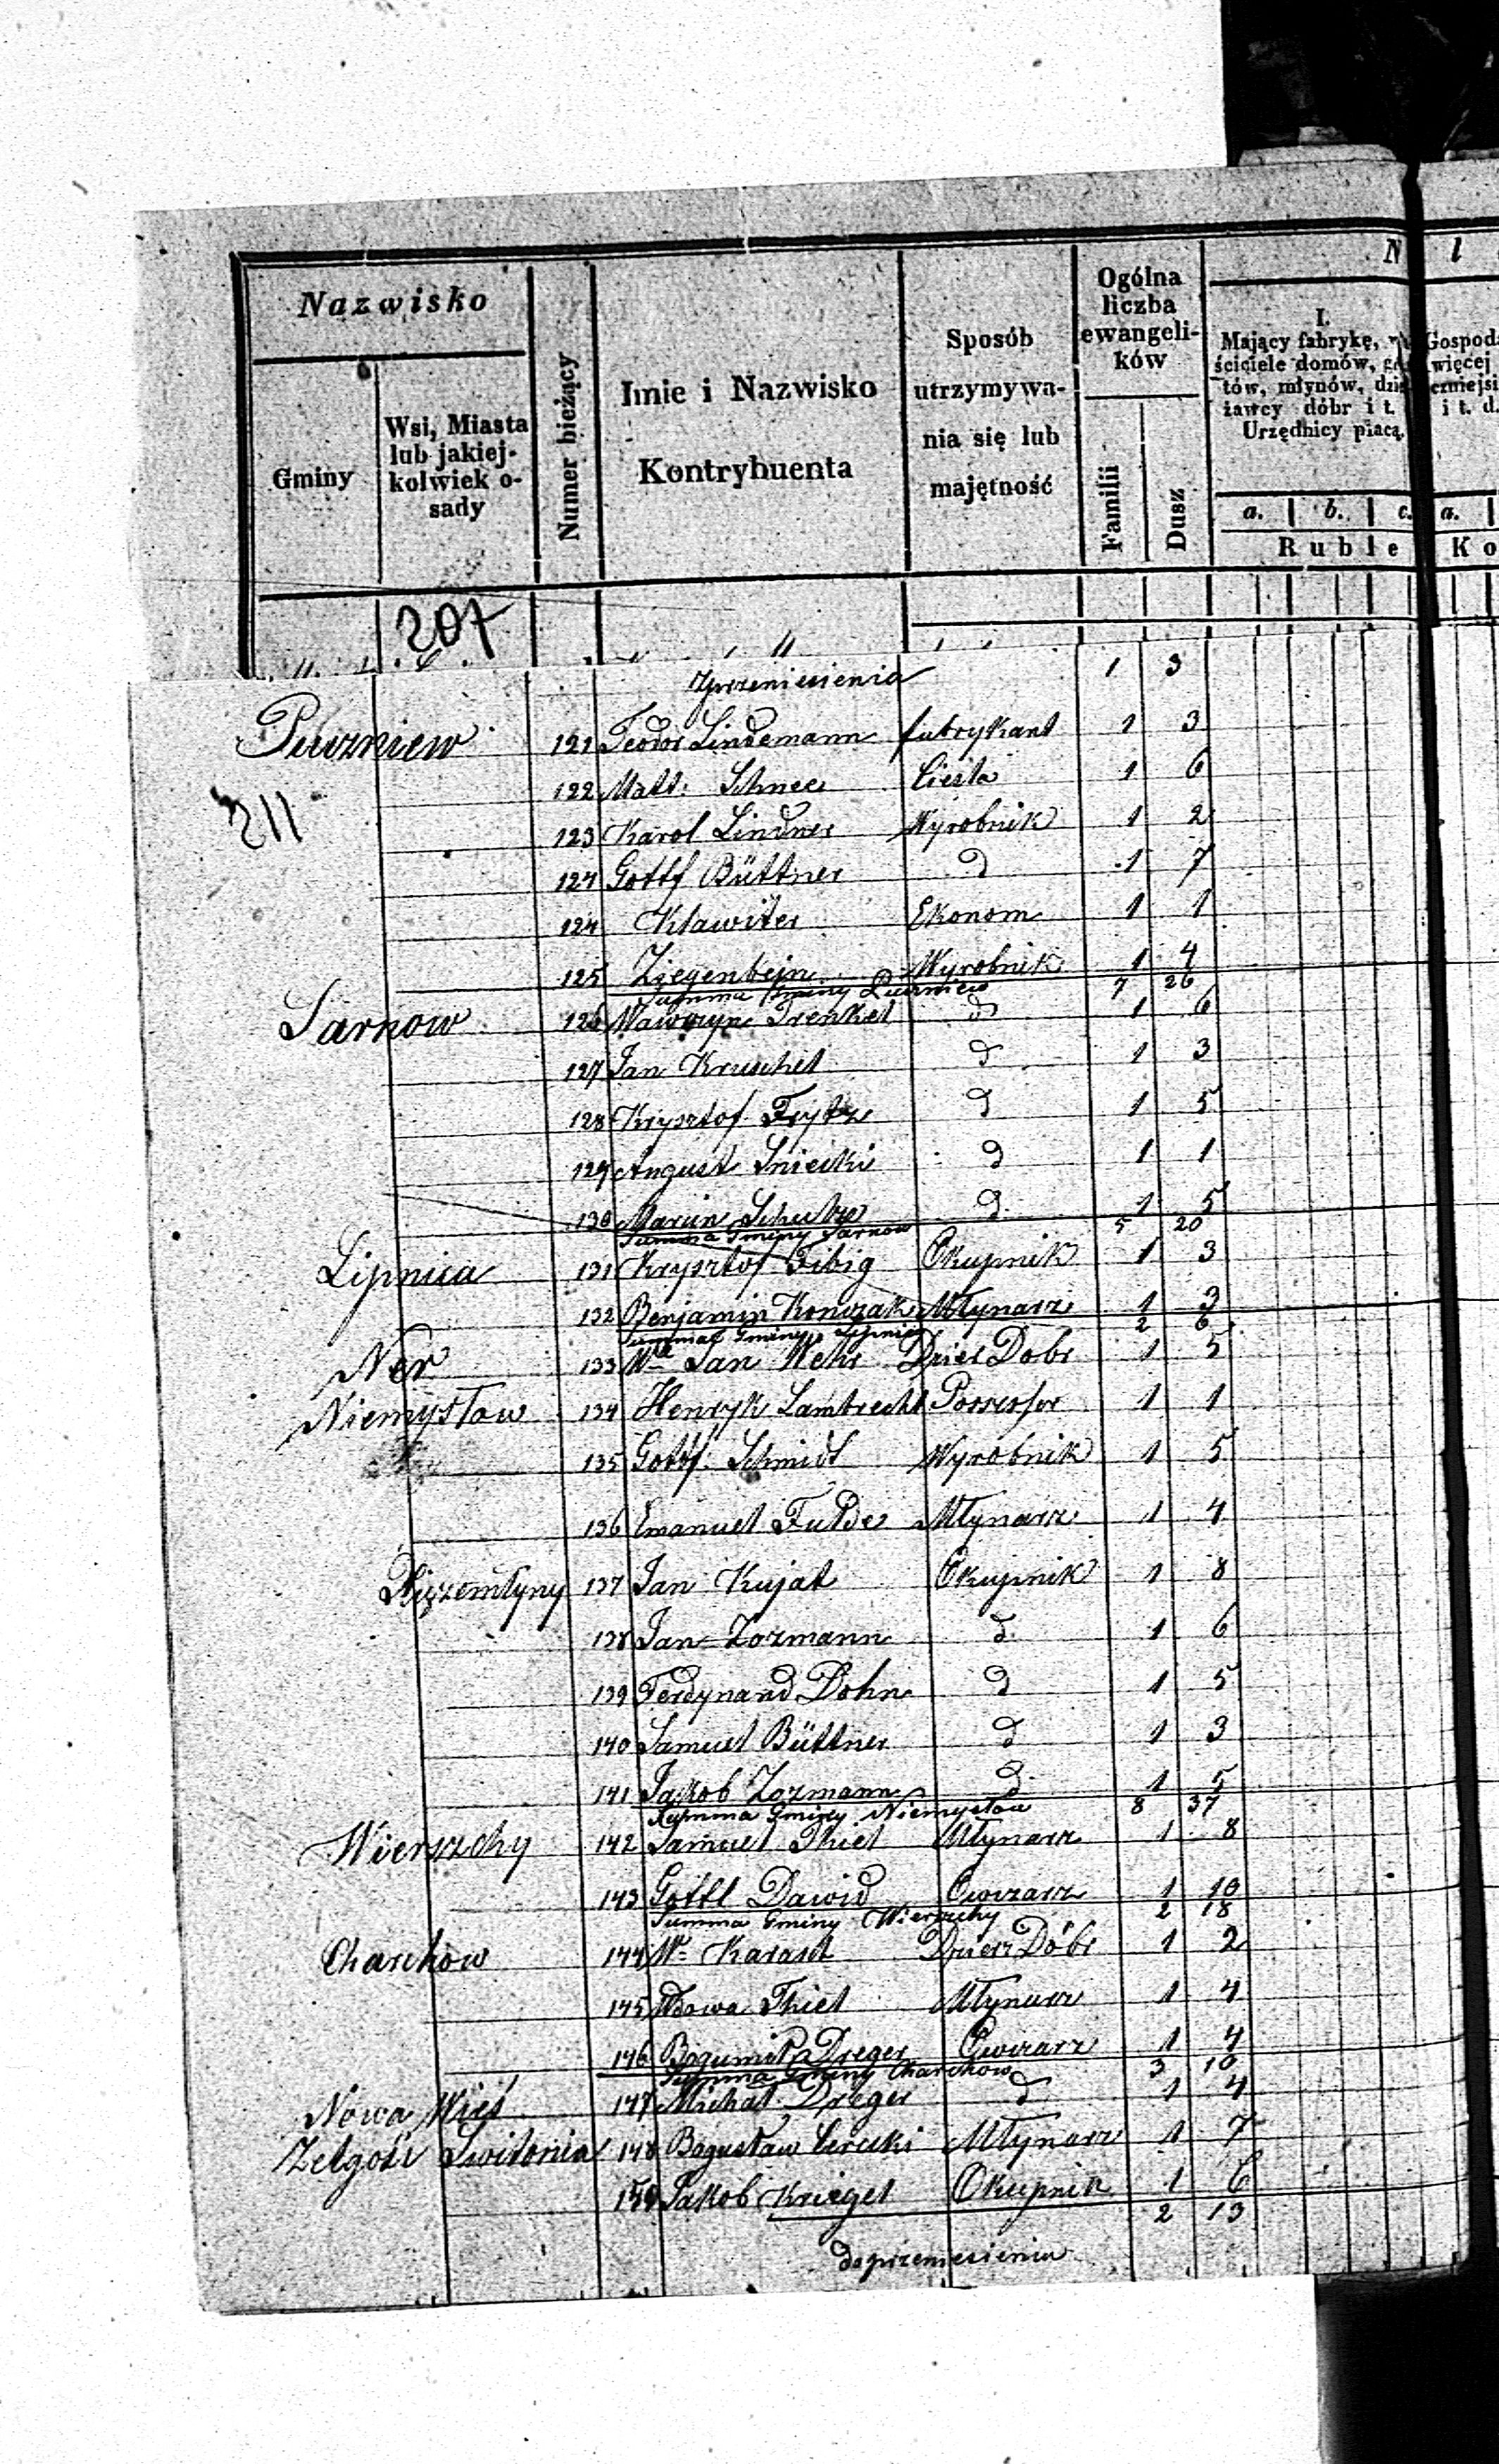 Nazwisko
Gminy
Wsi, Miasta lub jakiej-kolwiek o-sady
Numer bieżący
Imie i Nazwisko Kontrybuenta
Sposób utrzymywa-nia się lub majętność
Ogólna liczba ewangeli-ków
Familii
Dusz
N l
I.
Mający fabrykę,
ściciele domów,
tów, młynów,
żawcy dóbr i t.
Urzędnicy płacą.
Gospod
więcej
i t. d.
a. b. c. a.
Ruble Ko
207
Zprzeniesienia 1 3
Puczniew 121 Teodor Lindemann fabrykant 1 3
122 Matt: Schnee Cieśla 1 6
211
123 Karol Lindner Wyrobnik 1 2
124 Gottf Büttner d 1 7
124 Klawiter Ekonom 1 1
125 Ziegenbejn Wyrobnik 1 4
Summa Gminy Puczniew 7 26
Sarnow 126 Wawrzyn Trenkel d 1 6
127 Jan Kruschel d 1 3
128 Krysztof Frytz d 1 5
129 August Sniecki d 1 1
130 Marcin Schultz d 1 5
Summa Gminy Sarnow 5 20
Lipnica 131 Krysztof Fibig Okupnik 1 3
132 Benjamin Konczak Młynarz 1 3
Summa Gminy Lipnica 2 6
Ner 133 W. Jan Wehr Dzier Dobr 1 5
Niemysłow 134 Henryk Lambrecht Possessor 1 1
135 Gottf. Schmidt Wyrobnik 1 5
136 Emanuel Fulde Młynarz 1 4
Xiężemłyny 137 Jan Kujat Okupnik 1 8
138 Jan Zozmann d. 1 6
139 Ferdynand Dohn d 1 5
140 Samuel Büttner d 1 3
141 Jakob Zozmann d. 1 5
Summa Gminy Niemysłow 8 37
Wierszchy 142 Samuel Thiel Młynarz 1 8
143 Gottl Dawid Owczarz 1 10
Summa Gminy Wierzchy 2 18
Charchow 144 W. Dzierz Dóbr 1 2
145 Wdowa Thiel Młynarz 1 4
146 Bogumił Dreger Owczarz 1 4
Summa Gminy Charchow 3 10
Nowa Wieś 147 Michał Dreger d 1 4
Zelgość Switonia 148 Bogusław Cerecki Młynarz 1 7
Jakob Kriegel Okupnik 1 6
2 13
do przeniesienia